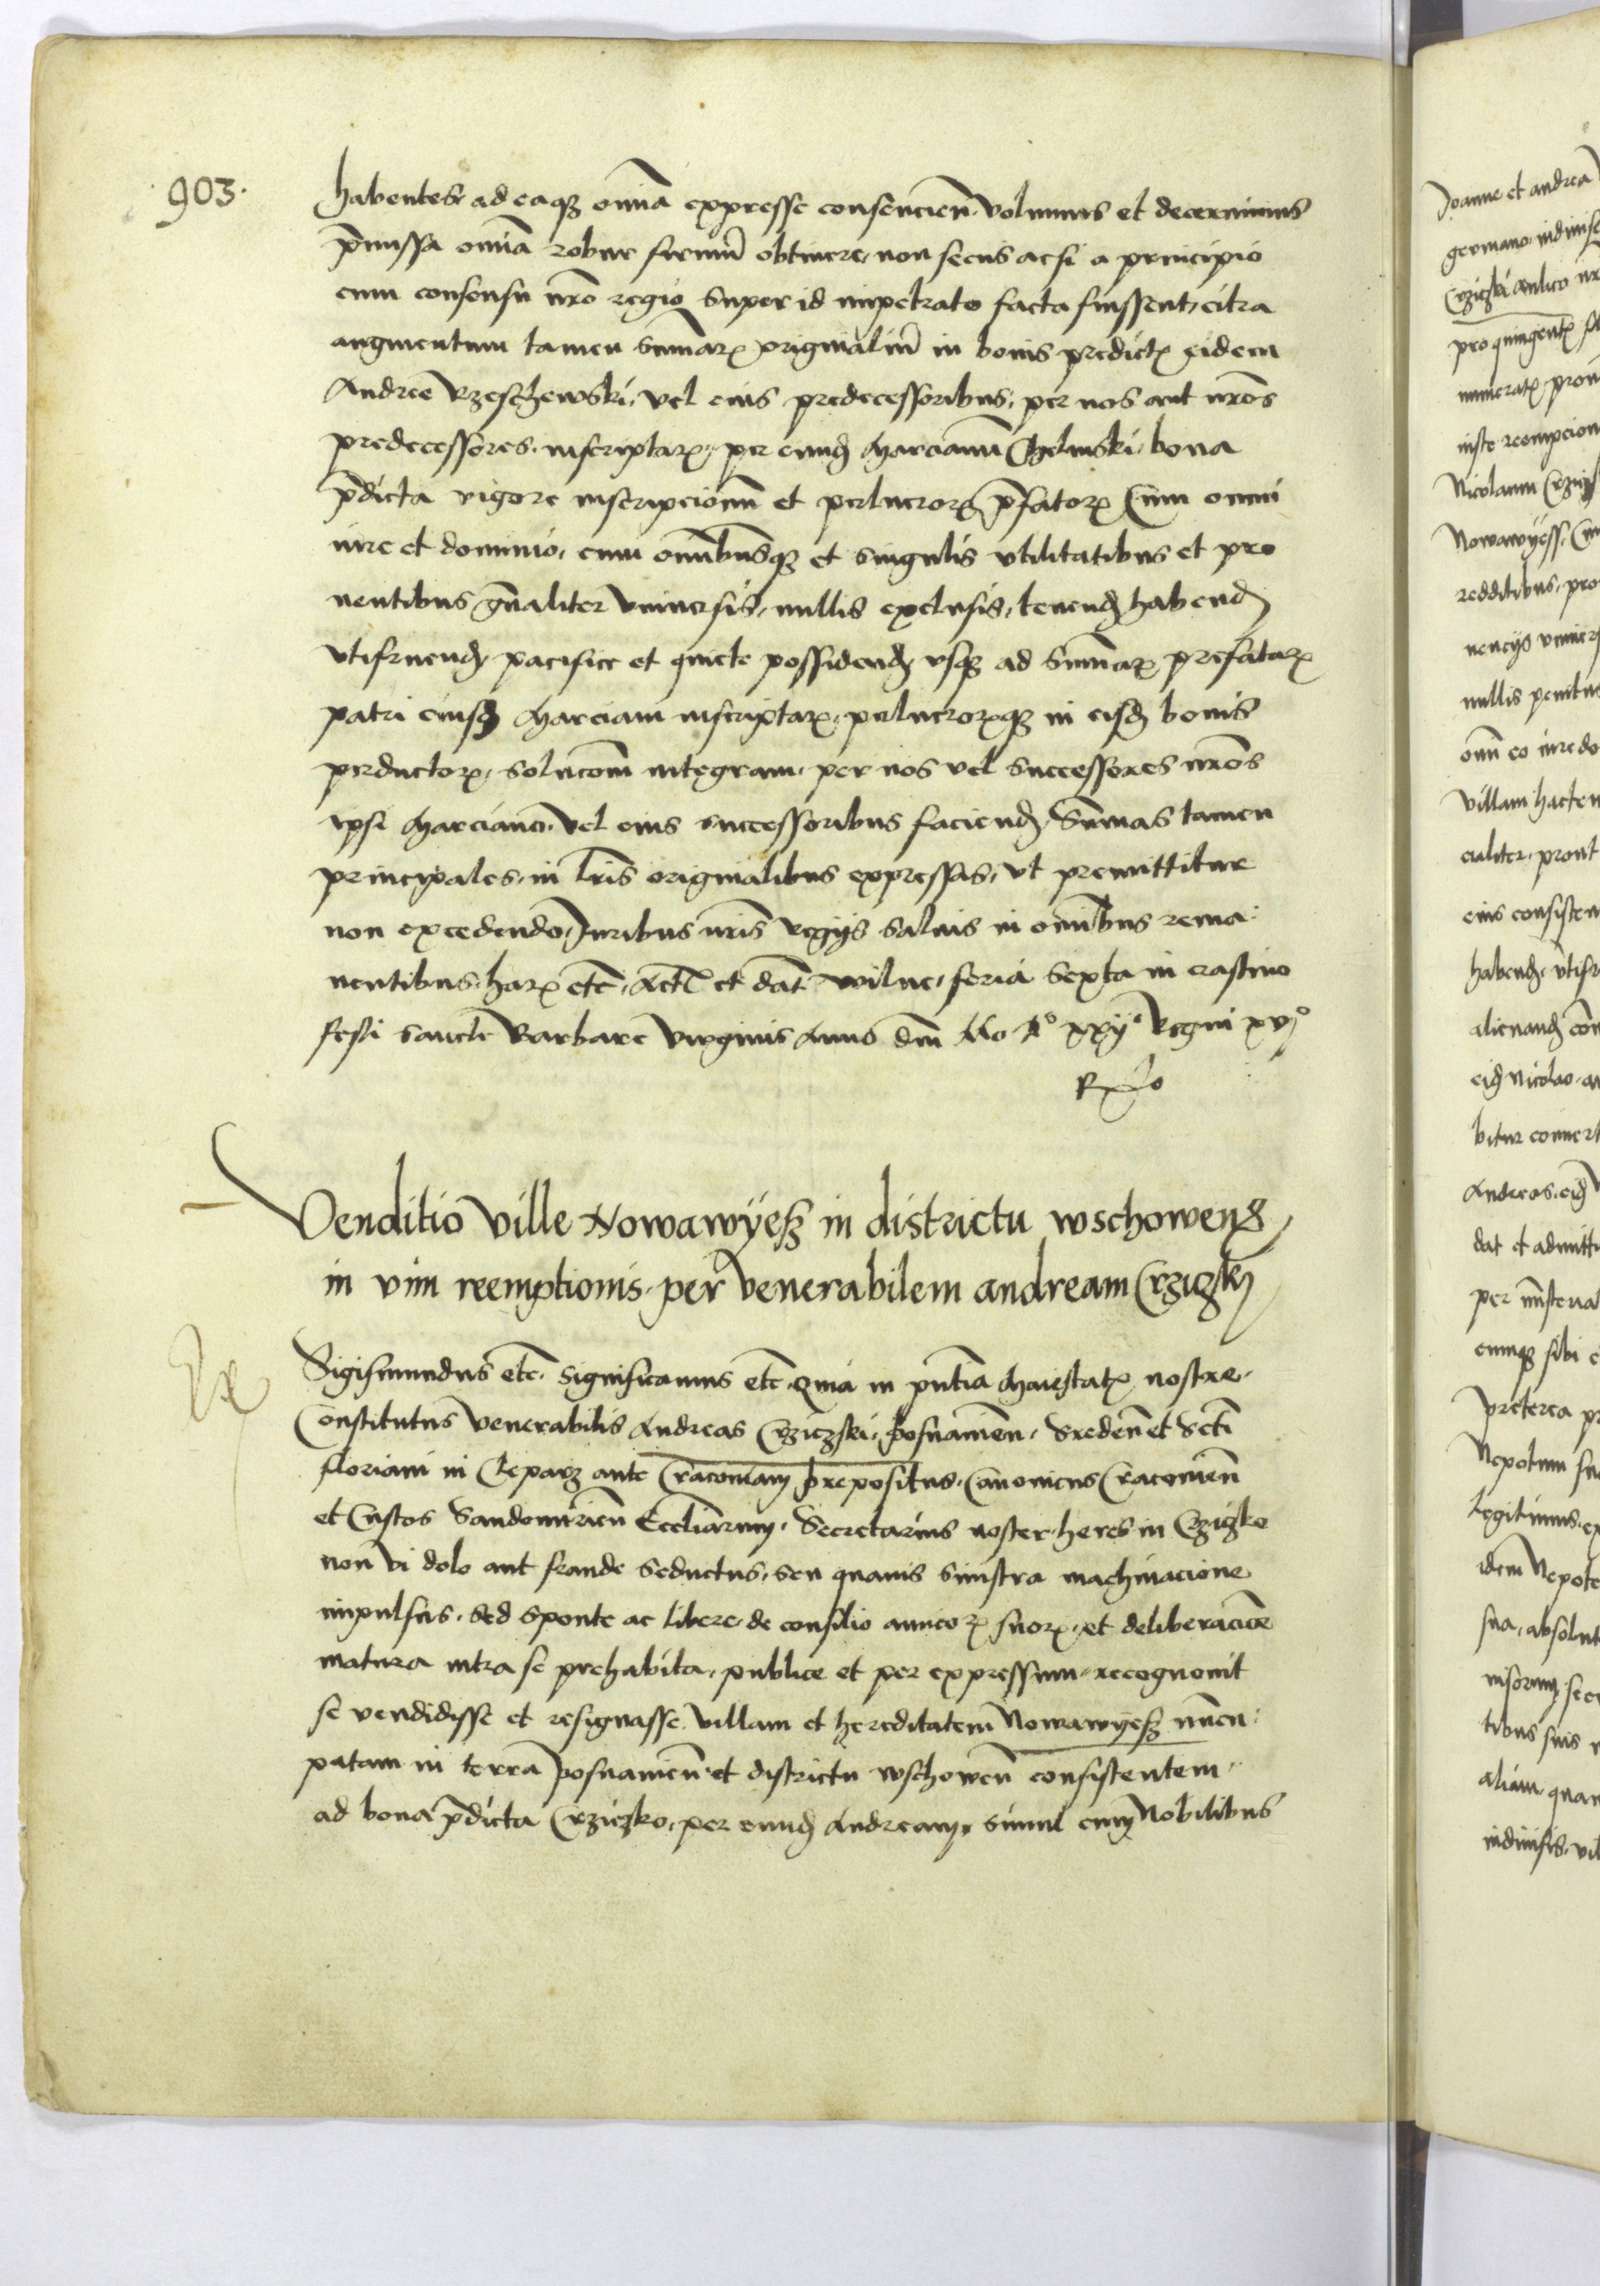 903.
habentes ad eaqz om̄ia expresse consencien̄ volumus et decernimus
p̄missa om̄ia robur firmiū obtinere, non secus acsi a principio
cum consensu nr̄o regio super id impetrato facta fuissent, citra
augmentum tamen Sum̄arꝝ originaliū in bonis predictꝭ eidem
Andree Rzeschewski, vel eius predecessoribus, per nos aut nr̄os
predecessores inscriptarꝝ, per eund Marcianū Chelmski bona
p̄dicta vigore inscripcionū et perlucrorꝝ p̄fatorꝝ Cum omni
iure et dominio, cum om̄ibusqz et singulis vtilitatibus et pro
uentibus gn̄aliter vniuersis, nullis exclusis, tenend habend
vtifruend, pacifice et quiete possidend, vsqz ad Sum̄arꝝ prefatarꝝ
patri eiusd Marciani inscriptarꝝ, perlucrorꝝqz in eisd bonis
perductorꝝ, solucōm integram, per nos vel successores nr̄os
ipsi Marciano, vel eius successoribus faciend, Sum̄as tamen
principales in lr̄is originalibus expressas, vt premittitur
non excedendo, Iuribus nr̄is regijs saluis in om̄ibus rema
nentibus, harꝝ etc̄, Act̄ et dat̄ wilne, feria Sexta in crastino
festi sancte Barbare virginis Anno dn̄i Mo
xxijº Regni xvjº
Venditio ville Nowawÿesz in districtu wschowens
in vim reemptionis per venerabilem andream Crzizky
Sigismundus etc̄. significamus etc̄. Quia in pn̄tia Maiestatꝭ nostre
Constitutus venerabilis Andreas Crziczski, posnanien̄. Sreden̄ et Scti
floriani in Cleparz ante Cracouiam prepositus, Canonicus Cracouien̄
et Custos Sandomirien̄ Eccliarum, Secretarius noster heres in Crzizko
non vi dolo aut fraude seductus, seu quauis sinistra machinacione
impulsus, Sed sponte ac libere, de consilio amicorꝝ suorꝝ, et deliberacione
matura intra se prehabita, publice et per expressum recognouit
se vendidisse et resignasse villam et hereditatem Nowawyesz nun̄cu
patam in terra posnanien̄ et districtu wschowen̄ consistentem
ad bona p̄dicta Crziczko, per eund Andream, simul cum Nobilibus
Joanne et andrea
germano
Crziczki aulico
pro quingentꝭ
numeratꝭ
iuste
Nicolaum
Nowawÿess
redditibus, pro
nullis penitus
villam hacten
prout
eius consisten
habend, vtifr
alienand
eid Nicolao
bitur
Andreas, eid
dat et admitt
per
eumqz sibi
preterea
Nepotum
legitimus
idem Nepote
sua, absolut
tibus suis
aliam quam
indiuisis